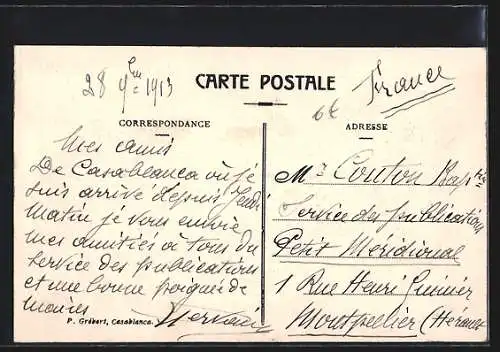 28 9bre 1913
CARTE POSTALE
France
6€
CORRESPONDANCE
ADRESSE
Mes amis
De Casablanca où je
suis arrivé depuis Jeudi
Matin je vous envoie
mes amitiés à tous du
service des publications
et une bonne poignée de
maires
P. Grébert, Casablanca.
Mr Couton Bapte
Service des publications
Petit Méridional
1 Rue Henri Guinier
Montpellier (Hérault